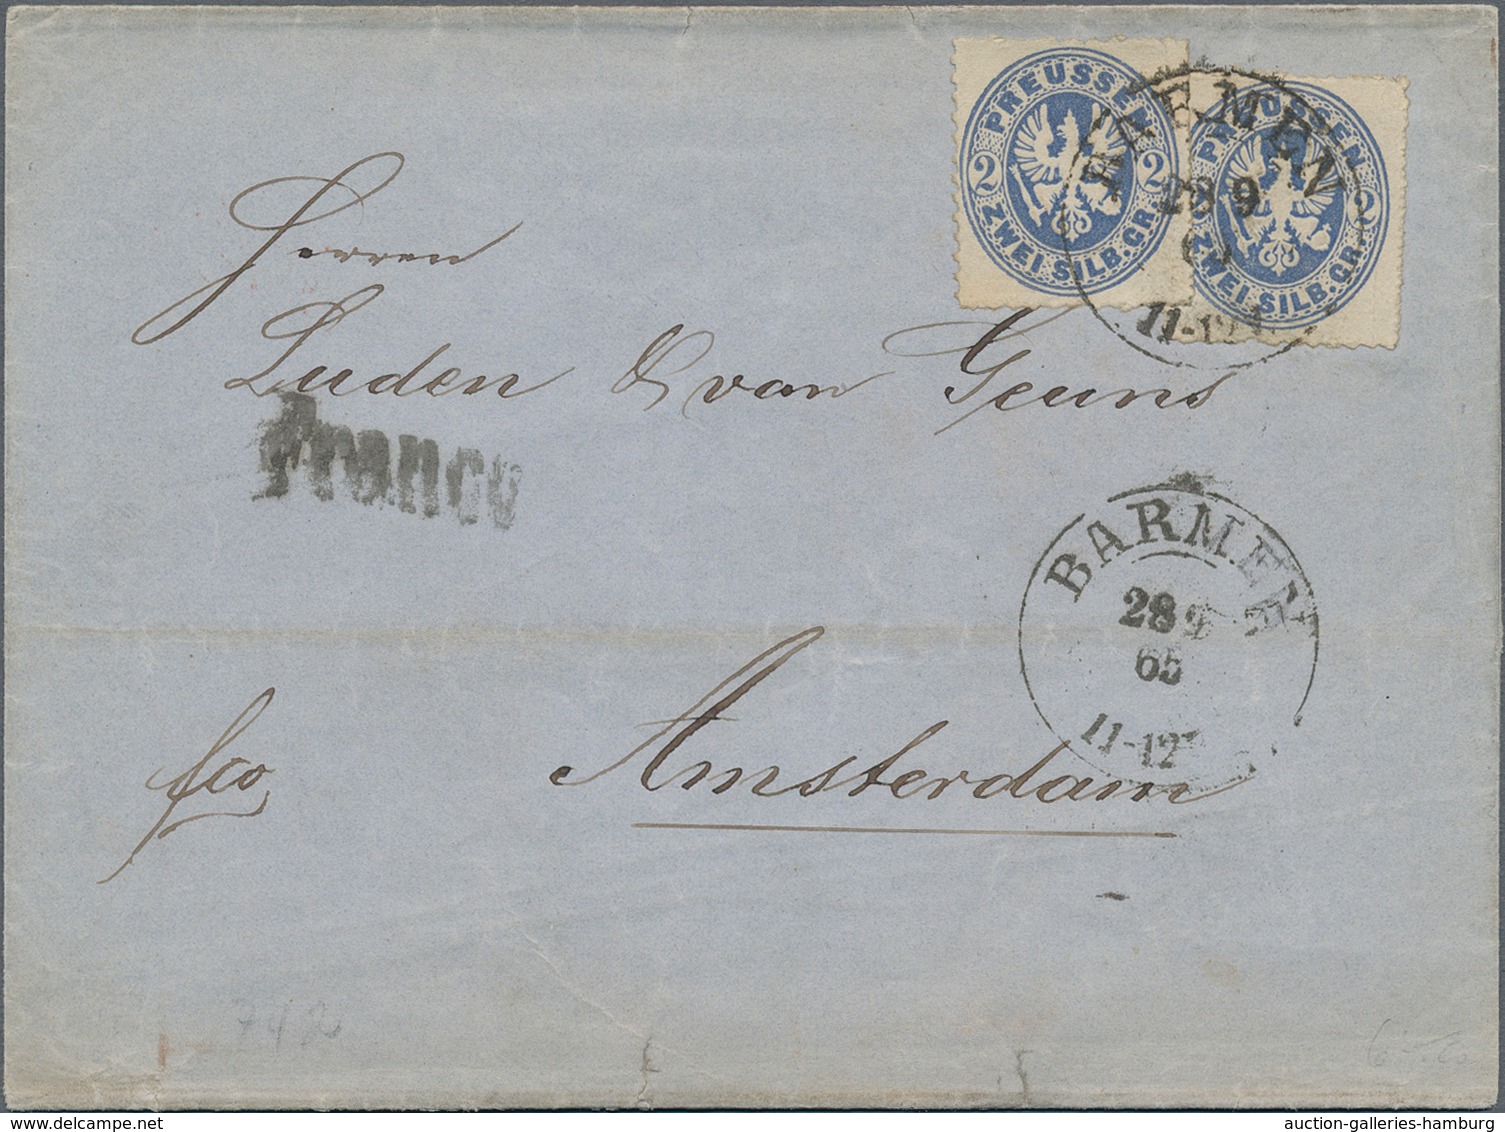 PREUSSEN
2 2
ZWEI SILB. GR.
PREUSSEN
2
ZWEI SILB. GR.
BARMEN
28 9
11-12
Herren
Luden & van Geuns
Franco
BARMEN
28 9
65
11-12
fco Amsterdam
742
delcampe.net
auction-galleries-hamburg